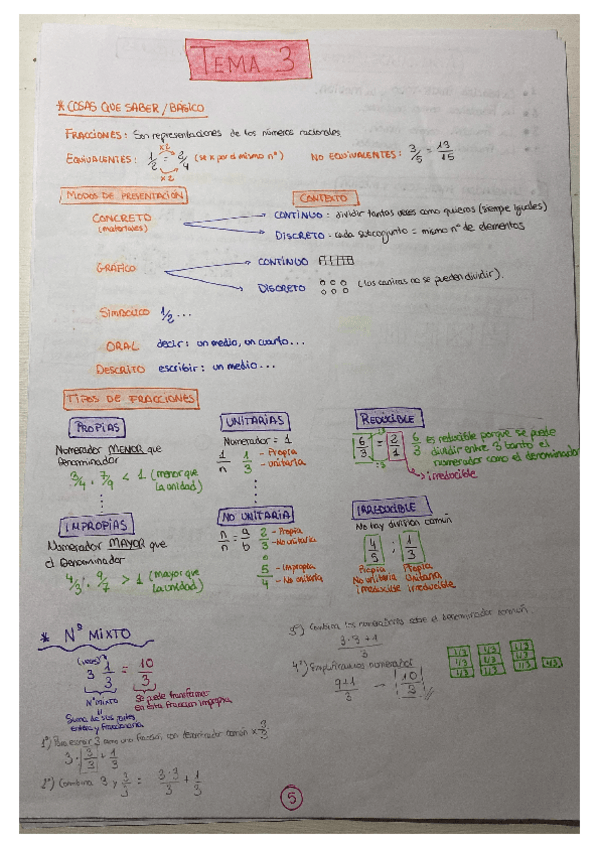 TEMA 3
* COSAS QUE SABER / BÁSICO
FRACCIONES: Son representaciones de los números racionales
x2
EQUIVALENTES: 1/2 = 2/4 (se x por el mismo nº) NO EQUIVALENTES: 3/5 = 13/15
x2
MODOS DE PRESENTACIÓN CONTEXTO
CONCRETO → CONTÍNUO: dividir tantas veces como quieras (siempre iguales)
(materiales) → DISCRETO - cada subconjunto = mismo nº de elementos
GRÁFICO → CONTÍNUO
→ DISCRETO (las canicas no se pueden dividir).
SIMBÓLICO 1/2 ...
ORAL decir: un medio, un cuarto...
DESCRITO escribir: un medio...
TIPOS DE FRACCIONES
PROPIAS UNITARIAS REDUCIBLE
Numerador MENOR que Denominador
3/4 . 7/9 < 1 (menor que la unidad)
Numerador = 1
1/n 1/3 - Propia - unitaria
6/3 = 2/1 6/3 es reducible porque se puede
dividir entre 3 tanto el
numerador como el denominador
→ irreducible
IMPROPIAS NO UNITARIA IRREDUCIBLE
Numerador MAYOR que
el Denominador
4/3 . 9/7 > 1 (mayor que la unidad)
n/n = a/b 2/3 - Propia - No unitaria
o
5/4 - Impropia - No unitaria
No hay división común
4/5 ; 1/3
Propia Propia
No unitaria Unitaria
irreducible irreducible
* Nº MIXTO
(veces)
3 1/3 = 10/3
Nº MIXTO
Suma de sus partes
entera y fraccionaria
Se puede transformar
en esta fracción impropia
1º) Para escribir 3 como una fracción con denominador común x 3/3
3 · 3/3 + 1/3
2º) Combina 3 y 3/3 : 3·3/3 + 1/3
3º) Combina los numeradores sobre el denominador común
3·3+1/3
4º) Simplificamos numerador
9+1/3 - 10/3
1/3 1/3 1/3
1/3 1/3 1/3
1/3 1/3 1/3 1/3
5